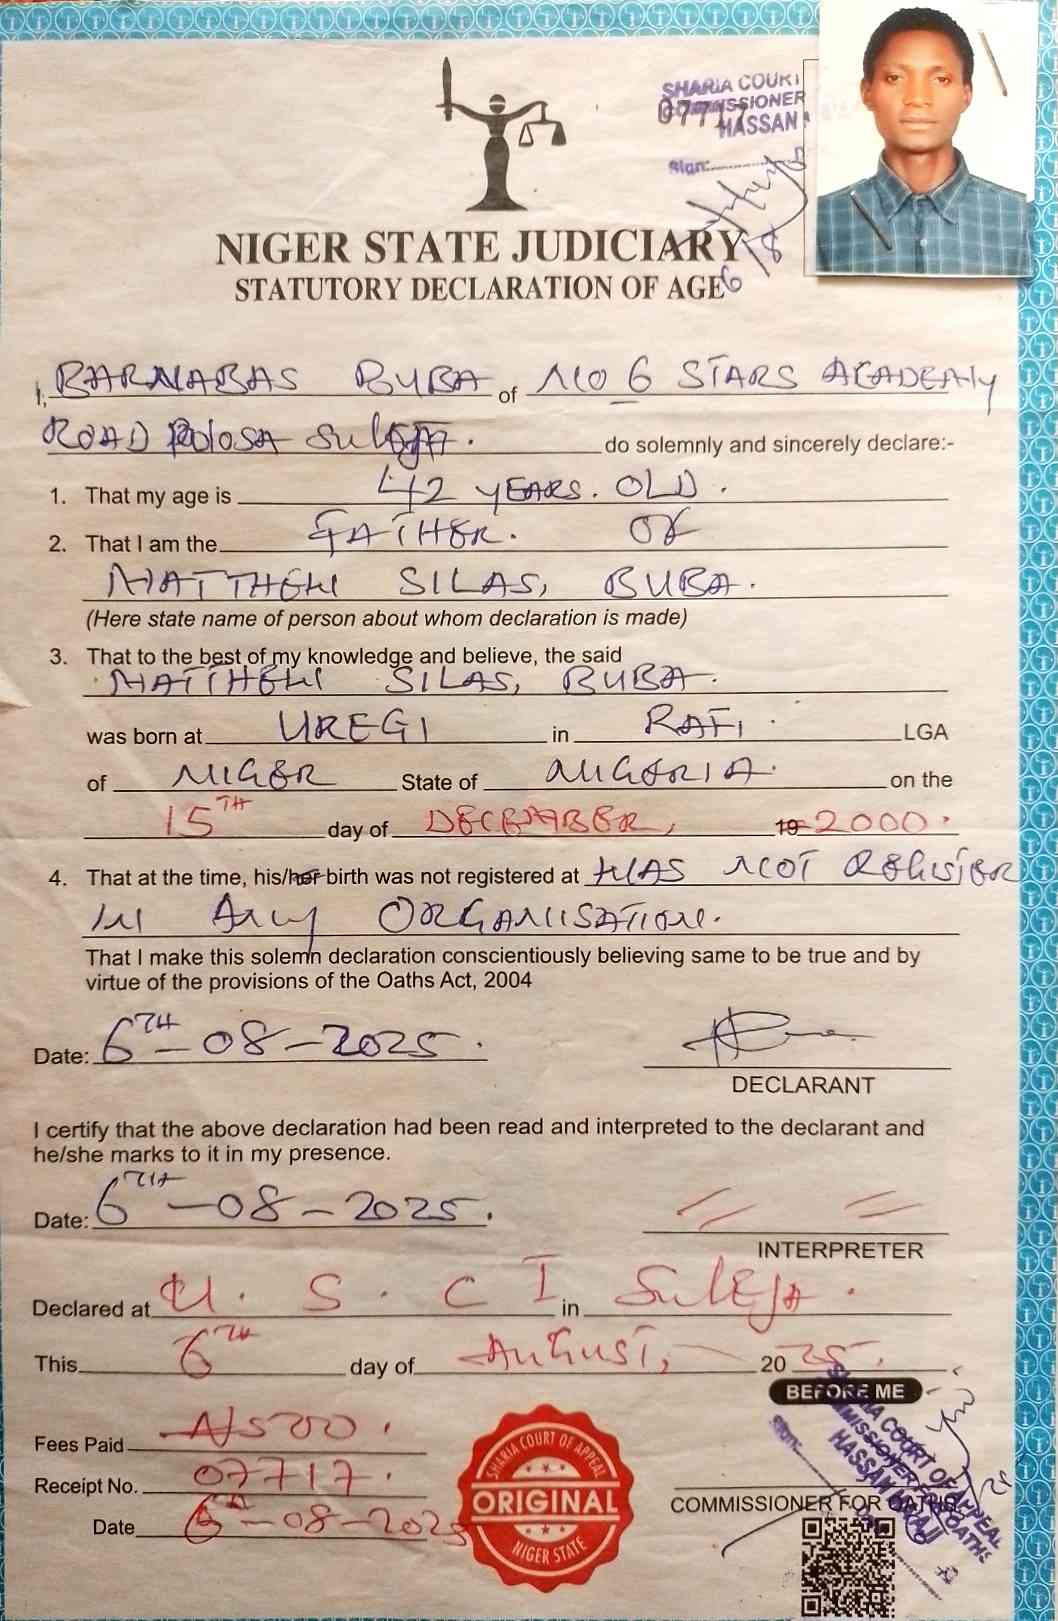 SHARIA COURT
COMMISSIONER
07717
HASSAN
Sign:
6/8
NIGER STATE JUDICIARY
STATUTORY DECLARATION OF AGE
I, BARNABAS BUBA of NO 6 STARS ACADEMY
ROAD Polosa Suleja. do solemnly and sincerely declare:-
1. That my age is 42 YEARS. OLD.
2. That I am the FATHER. OF
MATTHEW SILAS, BUBA.
(Here state name of person about whom declaration is made)
3. That to the best of my knowledge and believe, the said
MATTHEW SILAS, BUBA.
was born at UREGI in RAFI. LGA
of NIGER State of NIGERIA. on the
15TH day of DECEMBER, 19 2000.
4. That at the time, his/her birth was not registered at WAS NOT REGISTER
IN Any ORGANISATION.
That I make this solemn declaration conscientiously believing same to be true and by
virtue of the provisions of the Oaths Act, 2004
Date: 6TH-08-2025.
DECLARANT
I certify that the above declaration had been read and interpreted to the declarant and
he/she marks to it in my presence.
Date: 6TH-08-2025.
INTERPRETER
Declared at U. S. C I in SulEJA.
This 6TH day of AUGUST, 20 25.
BEFORE ME
Fees Paid ₦500.
Receipt No. 07717.
Date 6th-08-2025
SHARIA COURT OF APPEAL
ORIGINAL
NIGER STATE
COMMISSIONER FOR OATHS
SHARIA COURT OF APPEAL
COMMISSIONER FOR OATHS
HASSAN
Sign: